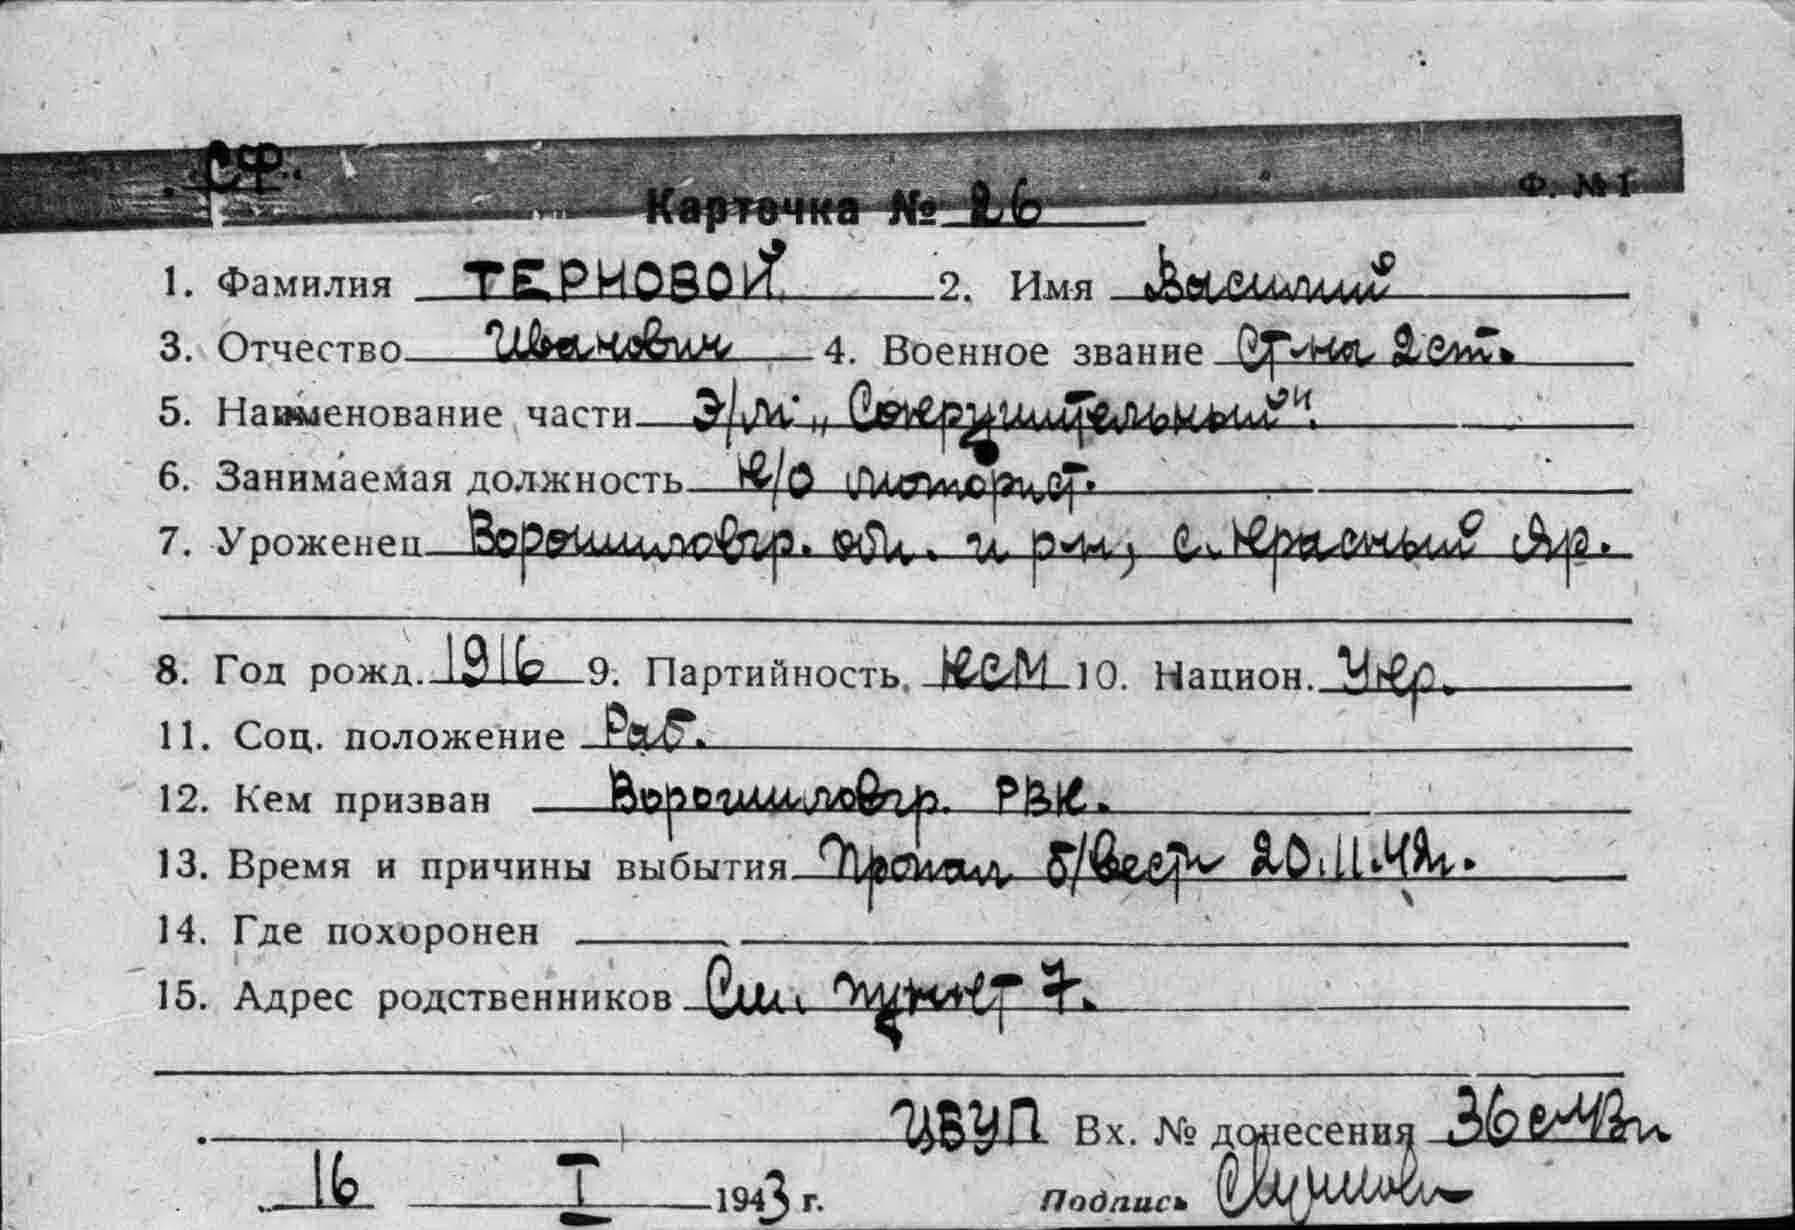 СФ.
Ф. № I
Карточка № 26
1. Фамилия ТЕРНОВОЙ 2. Имя Василий
3. Отчество Иванович 4. Военное звание Ст-на 2 ст.
5. Наименование части Э/м „Сокрушительный".
6. Занимаемая должность к/о моторист.
7. Уроженец Ворошиловгр. обл. и р-н, с. Красный Яр.
8. Год рожд. 1916 9. Партийность КСМ 10. Национ. Укр.
11. Соц. положение Раб.
12. Кем призван Ворошиловгр. РВК.
13. Время и причины выбытия Пропал б/вести 20.11.42г.
14. Где похоронен
15. Адрес родственников См. пункт 7.
ЦБУП Вх. № донесения 36
16 I 1943 г. Подпись